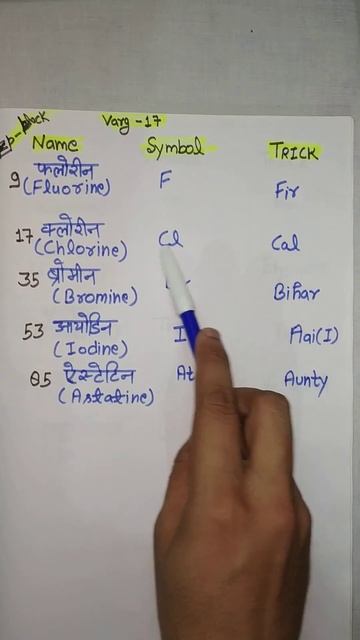 p-block
Varg-17
Name Symbol TRICK
9 फ्लोरीन F Fir
(Fluorine)
17 क्लोरीन Cl Cal
(Chlorine)
35 ब्रोमीन Bihar
(Bromine)
53 आयोडिन I Aai(I)
(Iodine)
85 ऐस्टेटिन At Aunty
(Astatine)